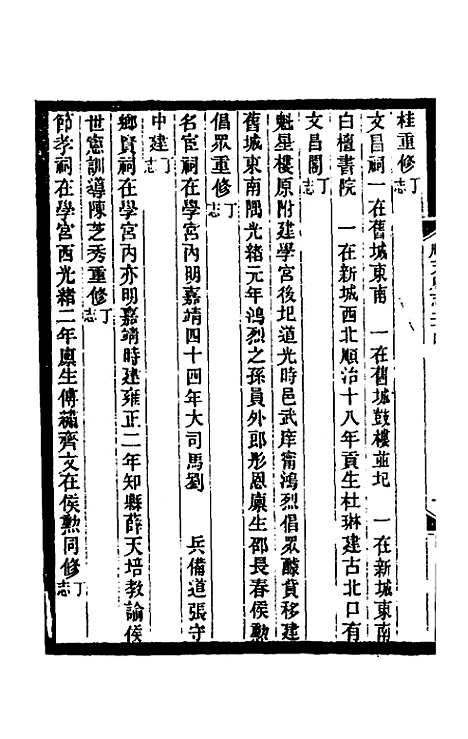 桂重修丁志
文昌祠一在舊城東南 一在舊城鼓樓並圯 一在新城東南
白檀書院 一在新城西北順治十八年貢生杜琳建古北口有
文昌閣丁志
魁星樓原附建學宮後圯道光時邑武庠甯鴻烈倡眾醵貲移建
舊城東南隅光緒元年鴻烈之孫員外郎彤恩廩生邵長春侯勲
倡眾重修丁志
名宦祠在學宮內明嘉靖四十四年大司馬劉 兵備道張守
中建丁志
鄉賢祠在學宮內亦明嘉靖時建雍正二年知縣薛天培教諭侯
世憲訓導陳芝秀重修丁志
節孝祠在學宮西光緒二年廩生傅 齊文在侯勲同修丁志